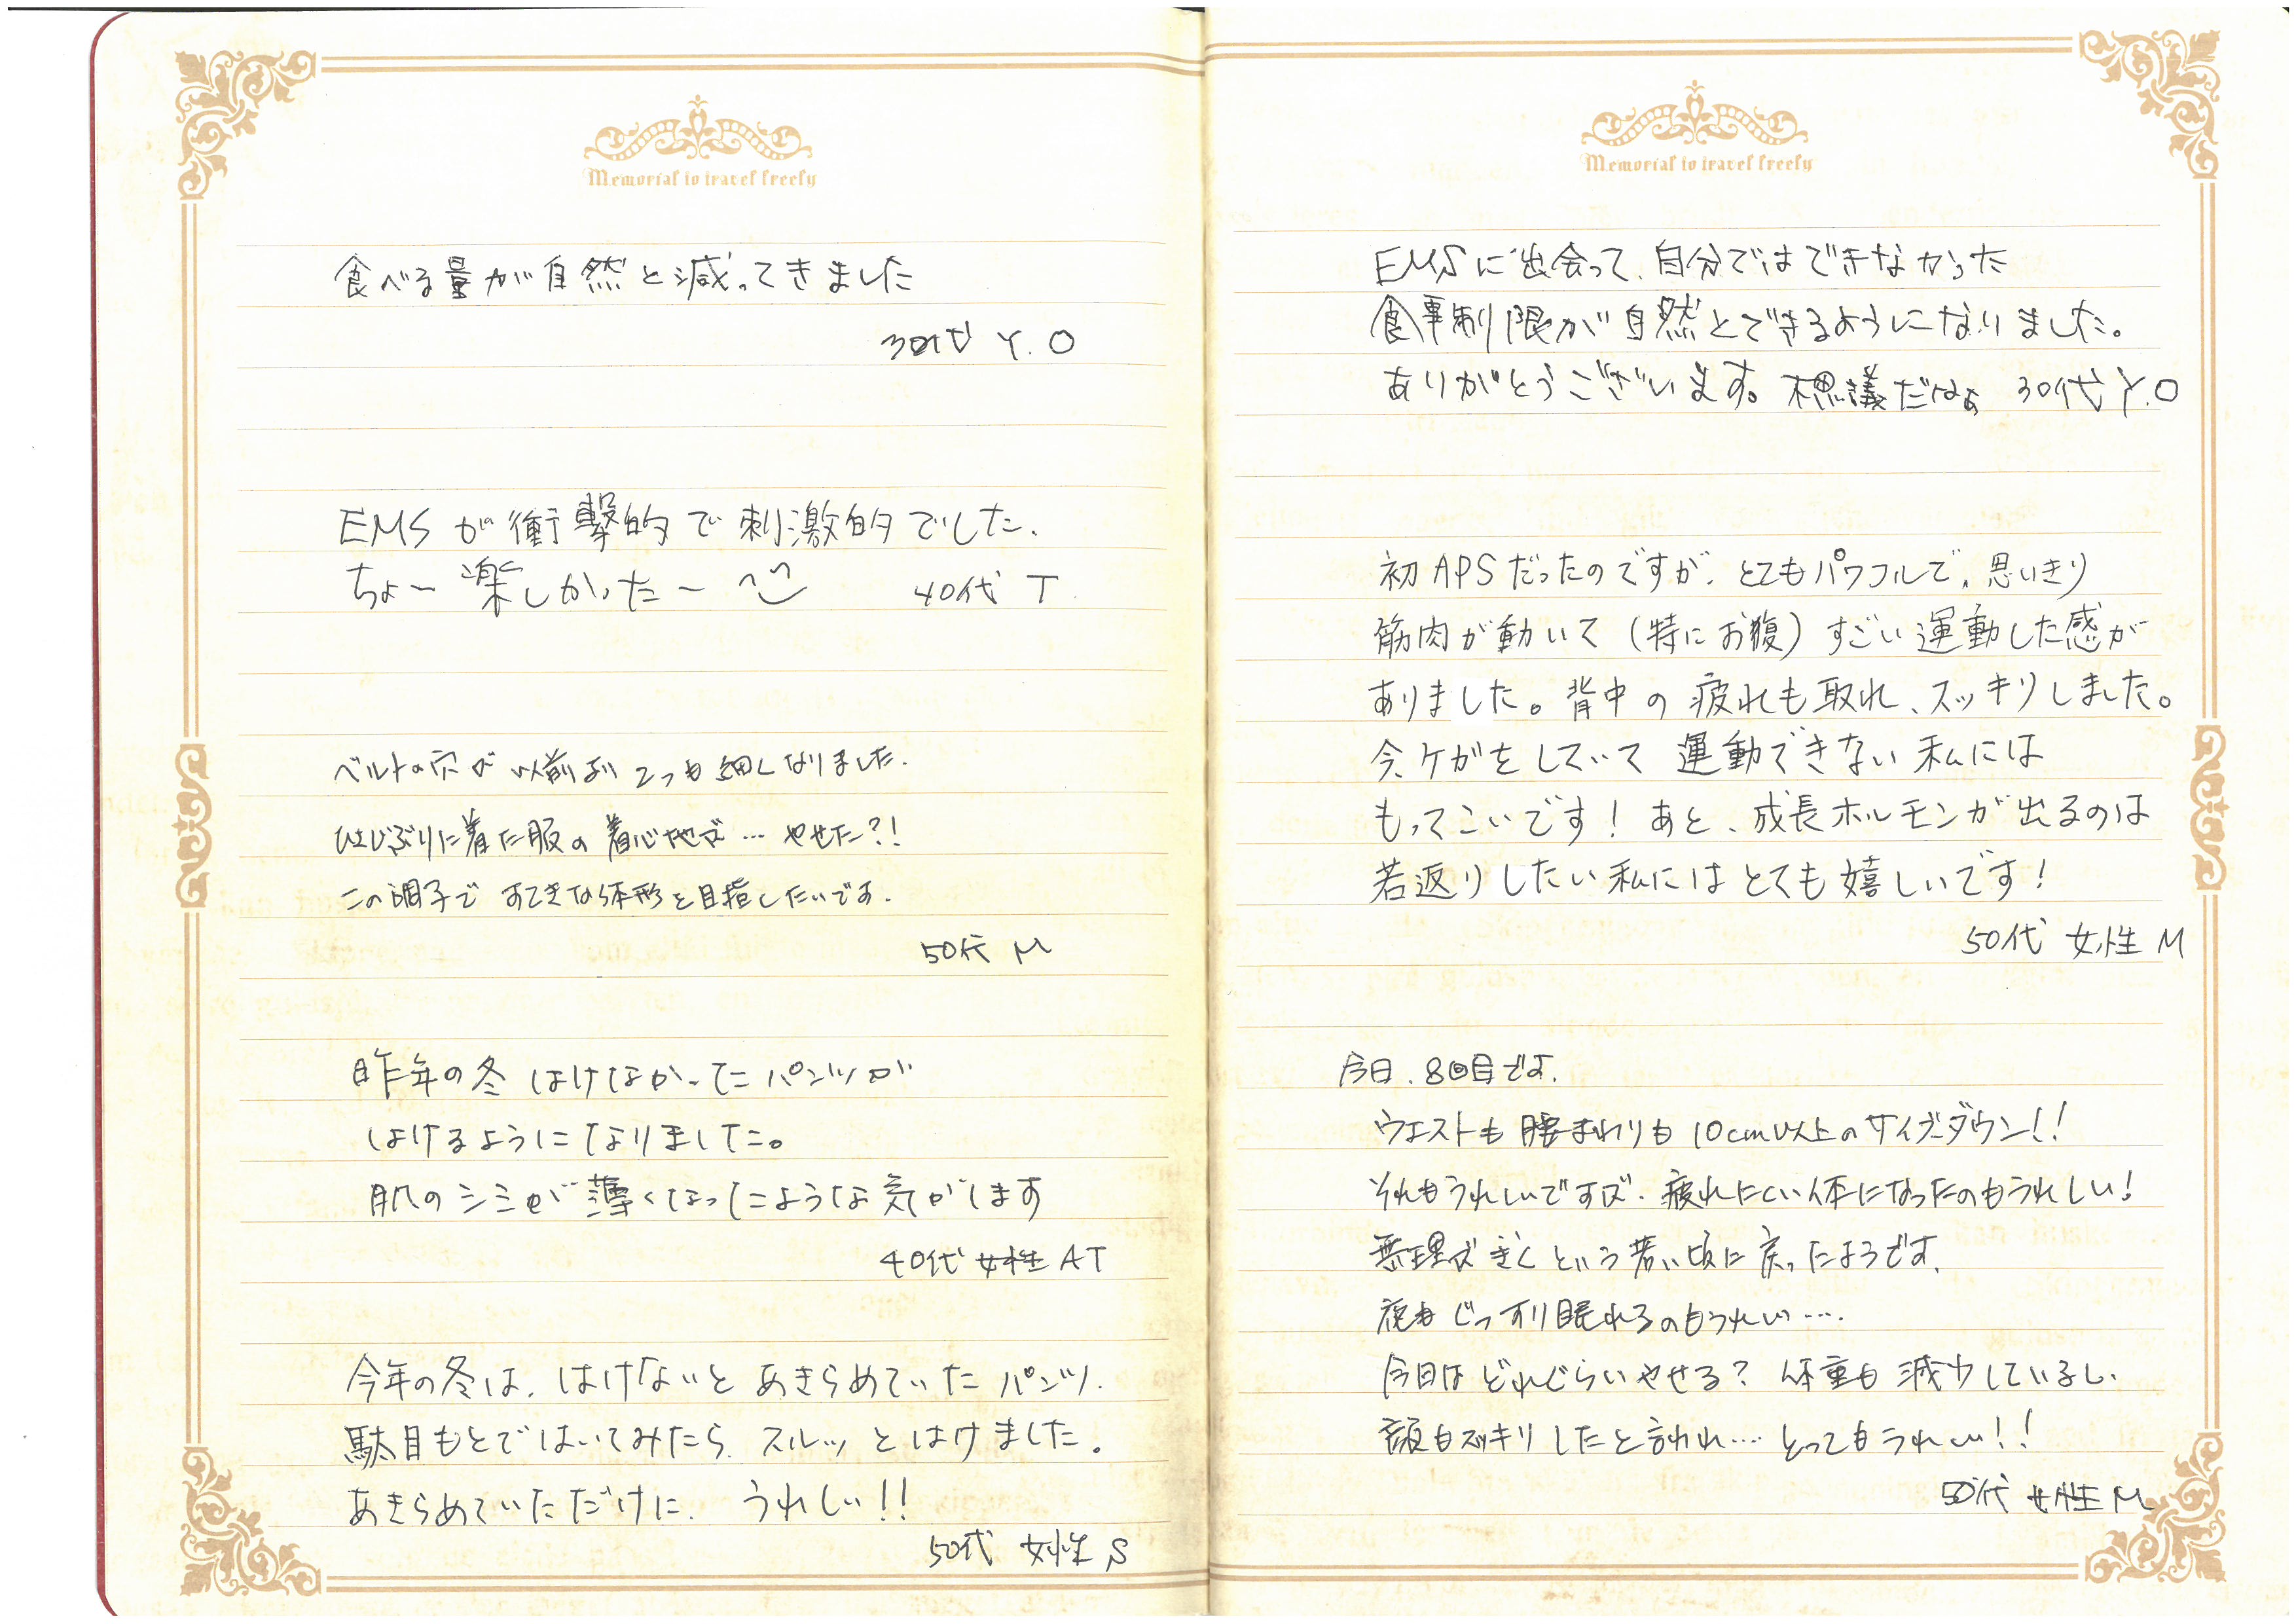 Memorial to travel freely
食べる量が自然と減ってきました
30代 Y.O
EMSが衝撃的で刺激的でした.
ちょ〜楽しかった〜
40代 T
ベルトの穴が以前より2つも細くなりました.
ひさしぶりに着た服の着心地が…やせた?!
この調子ですてきな体形を目指したいです.
50代 M
昨年の冬はけなかったパンツが
はけるようになりました。
肌のシミが薄くなったような気がします
40代 女性 AT
今年の冬は、はけないとあきらめていたパンツ.
駄目もとではいてみたら、スルッとはけました。
あきらめていただけに、うれしい!!
50代 女性 S
Memorial to travel freely
EMSに出会って、自分ではできなかった
食事制限が自然とできるようになりました。
ありがとうございます。不思議だなぁ 30代 Y.O
初APSだったのですが、とてもパワフルで、思いきり
筋肉が動いて(特にお腹)すごい運動した感が
ありました。背中の疲れも取れ、スッキリしました。
今、ケガをしていて運動できない私には
もってこいです!あと、成長ホルモンが出るのは
若返りしたい私にはとても嬉しいです!
50代 女性 M
今日、8回目です.
ウエストも腰まわりも10cm以上のサイズダウン!!
それもうれしいですが、疲れにくい体になったのもうれしい!
無理がきくという若い頃に戻ったようです.
夜もぐっすり眠れるのもうれしい….
今日はどれぐらいやせる?体重も減少しているし、
顔もスッキリしたと言われ…とってもうれしい!!
50代 女性 M